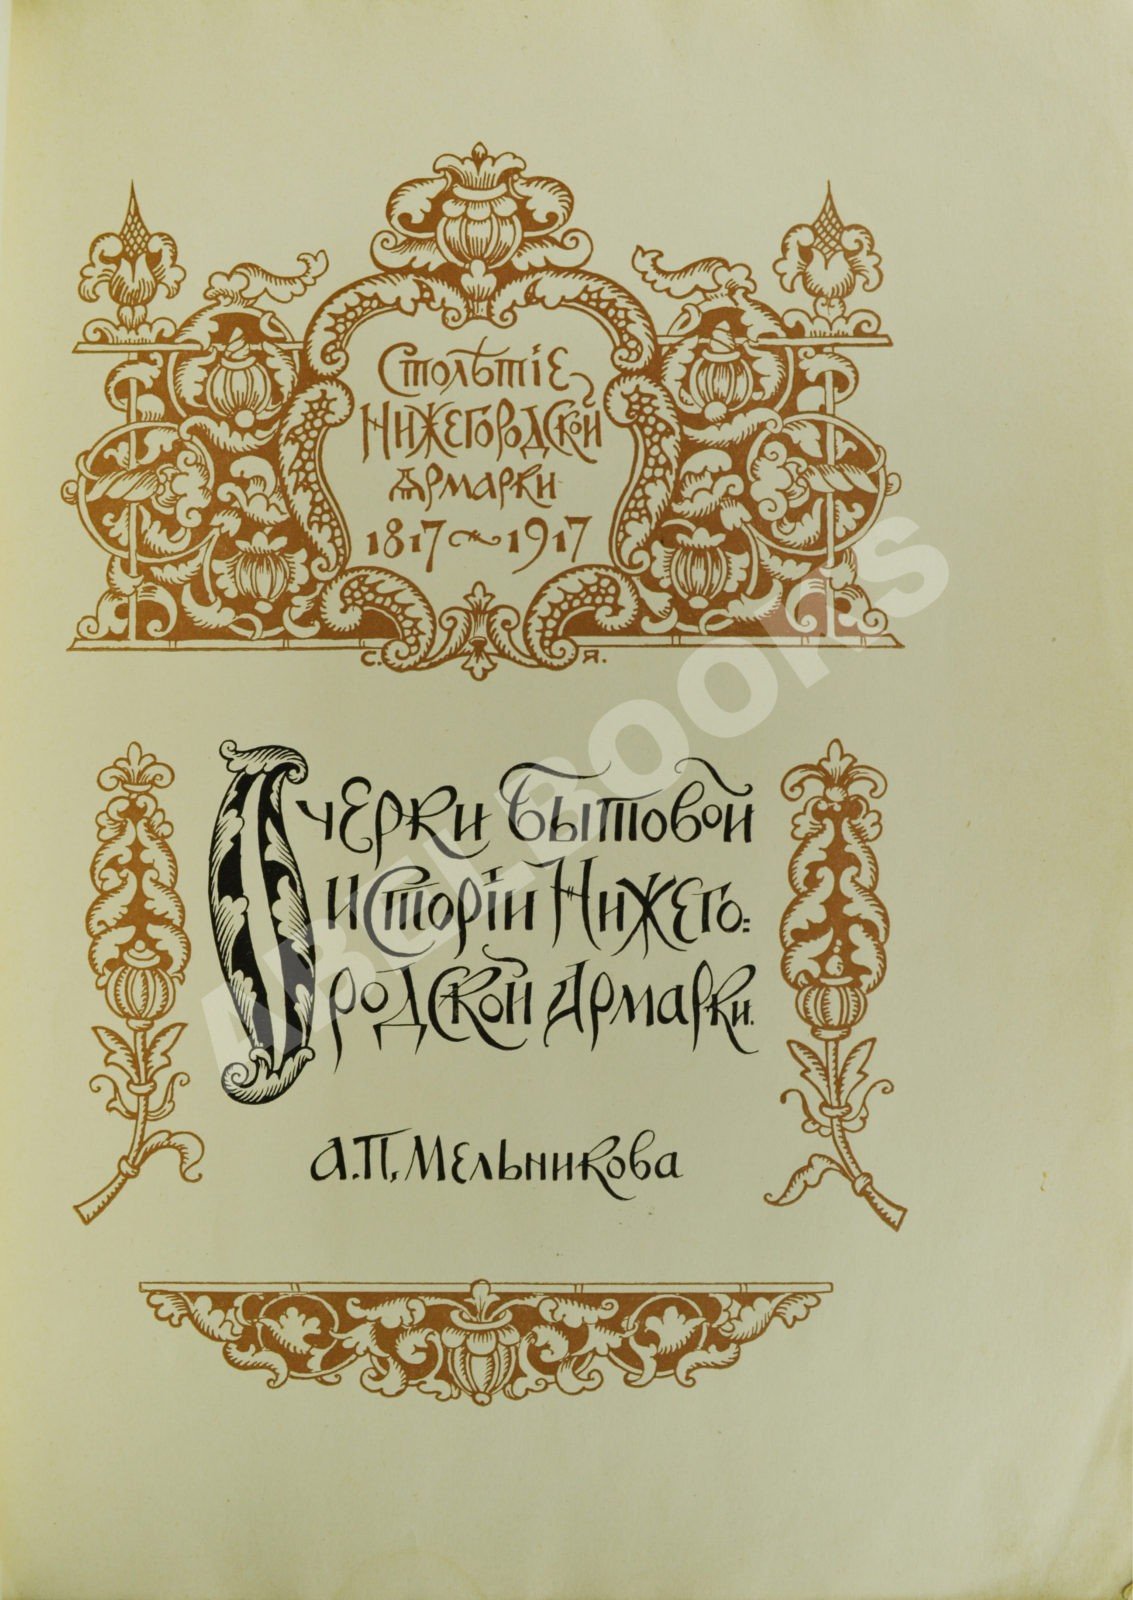 Столѣтіе
Нижегородской
Ярмарки
1817~1917
С. Я.
Очерки бытовой
исторіи Нижего=
родской Ярмарки.
А.П. Мельникова
ABELBOOKS